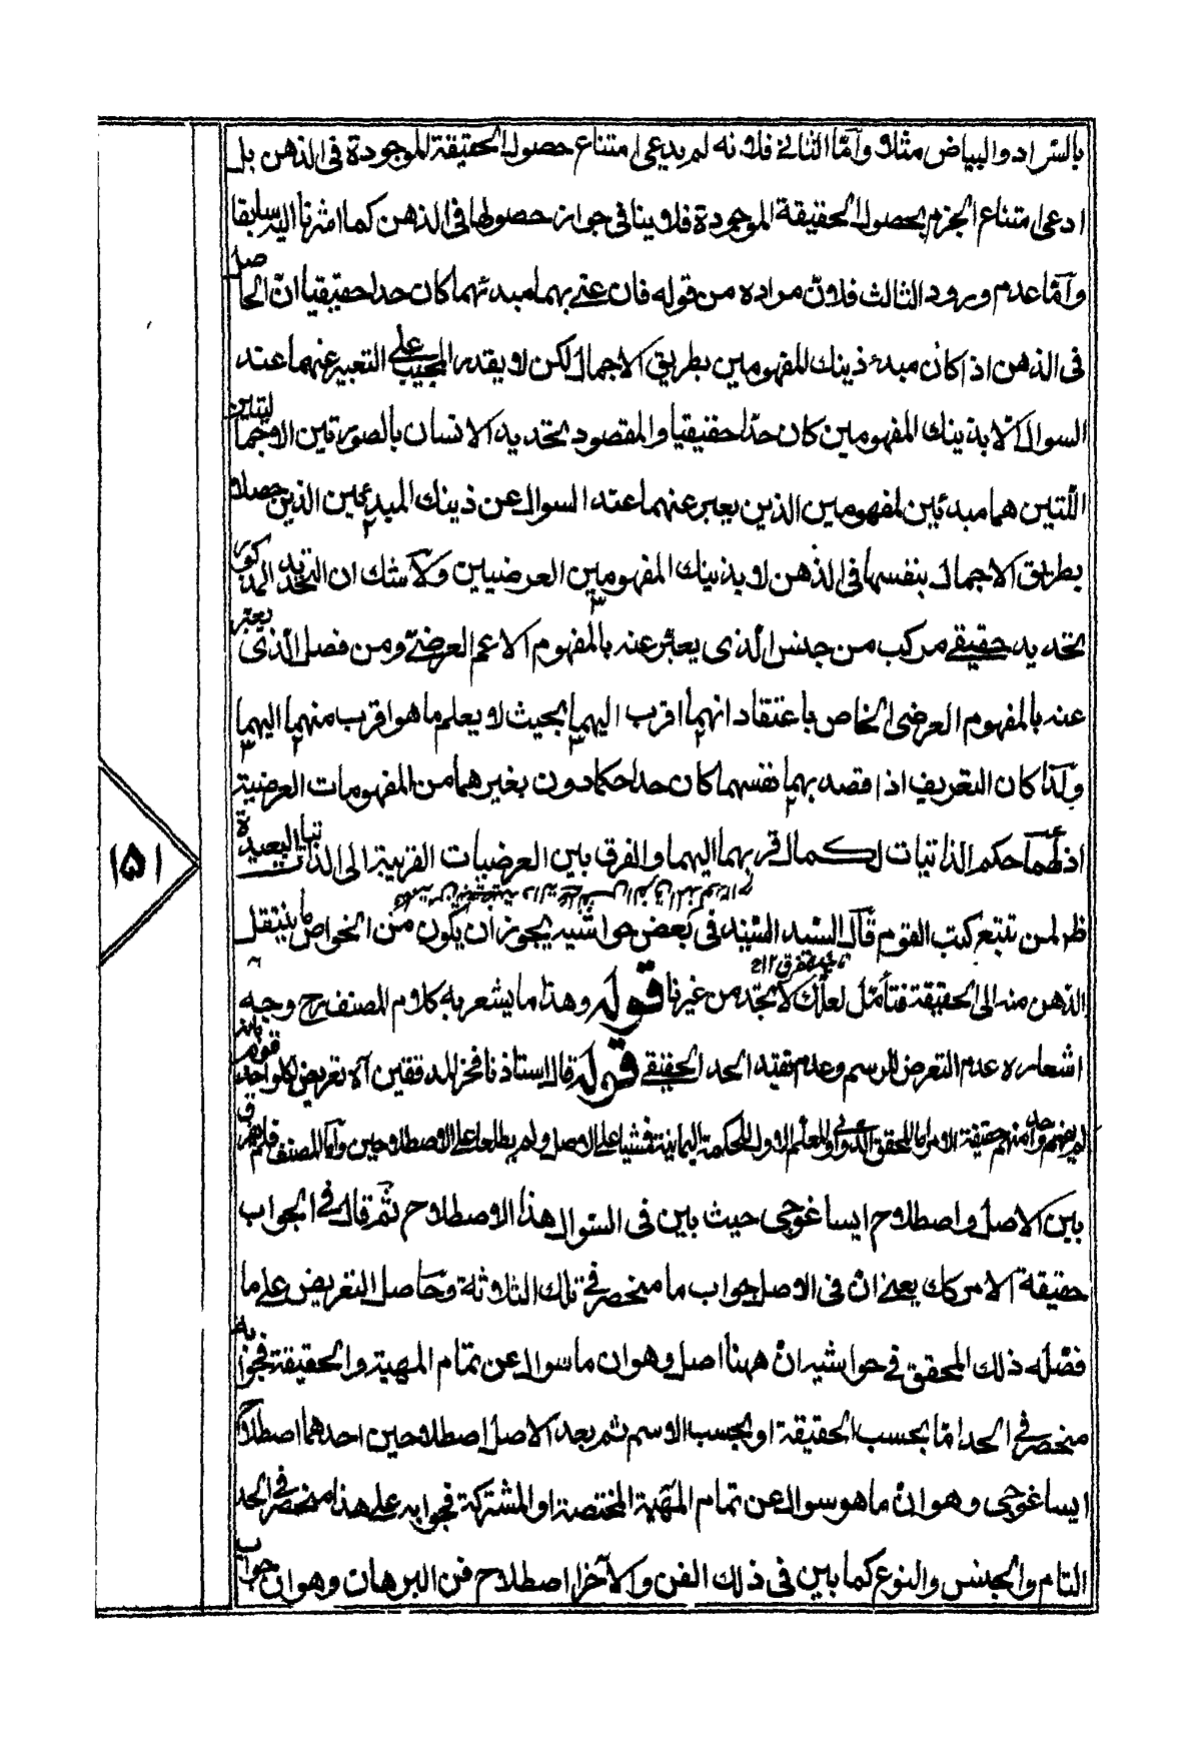 بالسواد والبياض مثلا وأما الثاني فلانه لم يدعي امتناع حصول الحقيقة الموجودة في الذهن بل
ادعى امتناع الجزم بحصول الحقيقة الموجودة فلا ينافي جواز حصولها في الذهن كما اشرنا اليه سابقا
وأما عدم ورود الثالث فلان مراده من قوله فان عنى بهما مبدئهما كان حدا حقيقيا ان الحاصل
في الذهن اذا كان مبدء ذينك المفهومين بطريق الاجمال لكن لا يقدر المجيب على التعبير عنهما عند
السوال الا بذينك المفهومين كان حدا حقيقيا والمقصود تحديد الانسان بالصورتين الاجماليتين
اللتين هما مبدئين لمفهومين الذين يعبر عنهما عند السوال عن ذينك المبدئين الذين حصلا
بطريق الاجمال بنفسها في الذهن لا بذينك المفهومين العرضيين ولا شك ان التحديد المذكور
تحديد حقيقي مركب من جنس الذى يعبر عنه بالمفهوم الاعم العرضي ومن فصل الذى يعبر
عنه بالمفهوم العرضى الخاص باعتقاد انهما اقرب اليهما بحيث لا يعلم ما هو اقرب منهما اليهما
ولذا كان التعريف اذا قصد بهما نفسهما كان حدا حكما دون بغيرهما من المفهومات العرضية
اذ لهما حكم الذاتيات لكمال قربهما اليهما والفرق بين العرضيات القريبة الى الذاتيات البعيدة
ظهر لمن تتبع كتب القوم قال السيد السند في بعض حواشيه يجوز ان يكون من الخواص ما ينتقل
الذهن منه الى الحقيقة فتأمل لعلك لا تجد من غيرنا قوله وهذا ما يشعر به كلام المصنف رح وجه
اشعاره عدم التعرض للرسم وعدم تقيد الحد الحقيقي قوله قال استاذنا فخر المدققين آه تعريض لكلا
حقيقة الامر اما المحقق الدواني والمعلم الاول للحكمة اليمانية فمشيا على الاصل ولم يطلعا على الاصطلاحين وأما المصنف فلم يفرق
بين الاصل واصطلاح ايساغوجي حيث بين في السوال هذا الاصطلاح ثم قال في الجواب
حقيقة الامر كك يعني ان في الاصل جواب ما منحصر في تلك الثلاثة وحاصل التعريض على ما
فصله ذلك المحقق في حواشيه ان ههنا اصل وهو ان ما سوال عن تمام المهية والحقيقة فجوابه
منحصر في الحد اما بحسب الحقيقة او بحسب الاسم ثم بعد الاصل اصطلاحين احدهما اصطلاح
ايساغوجي وهو ان ما هو سوال عن تمام المهية المختصة او المشتركة فجوابه على هذا منحصر في الحد
التام والجنس والنوع كما بين في ذلك الفن والآخر اصطلاح فن البرهان وهو ان جواب
١٥١